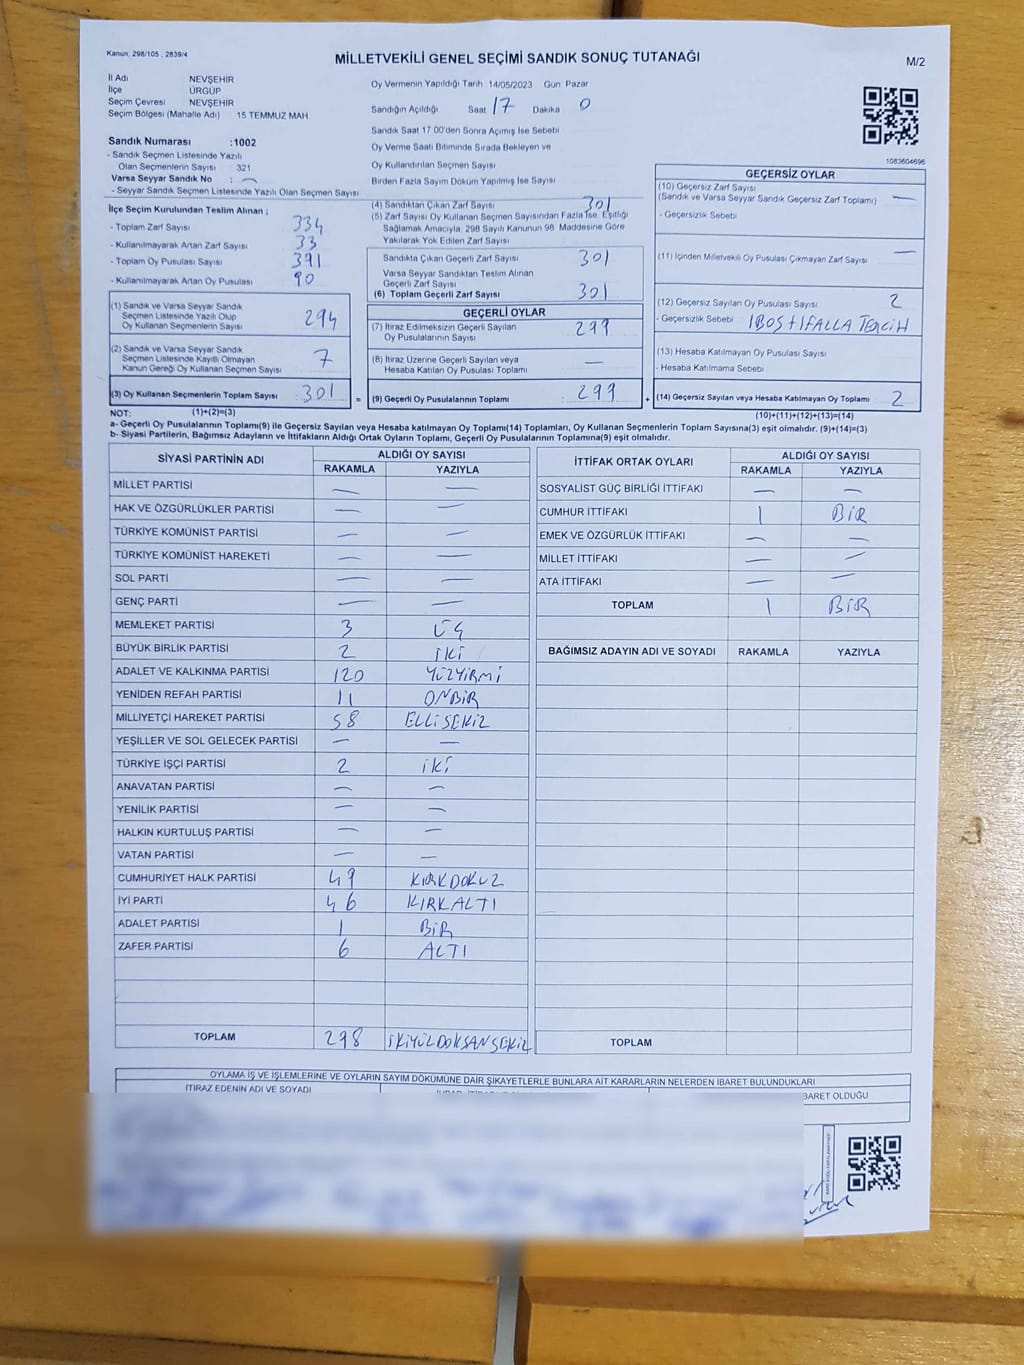 Kanun: 298/105 , 2839/4
MİLLETVEKİLİ GENEL SEÇİMİ SANDIK SONUÇ TUTANAĞI
M/2
İl Adı NEVŞEHİR
İlçe ÜRGÜP
Seçim Çevresi NEVŞEHİR
Seçim Bölgesi (Mahalle Adı) 15 TEMMUZ MAH
Oy Vermenin Yapıldığı Tarih 14/05/2023 Gün Pazar
Sandığın Açıldığı Saat 17 Dakika 0
Sandık Saat 17 00'den Sonra Açımış İse Sebebi
Oy Verme Saati Bitiminde Sırada Bekleyen ve
Oy Kullandırılan Seçmen Sayısı
Birden Fazla Sayım Döküm Yapılmış İse Sayısı
1083604696
Sandık Numarası :1002
- Sandık Seçmen Listesinde Yazılı
Olan Seçmenlerin Sayısı 321
Varsa Seyyar Sandık No : —
- Seyyar Sandık Seçmen Listesinde Yazılı Olan Seçmen Sayısı
İlçe Seçim Kurulundan Teslim Alınan ;
- Toplam Zarf Sayısı 334
- Kullanılmayarak Artan Zarf Sayısı 33
- Toplam Oy Pusulası Sayısı 391
- Kullanılmayarak Artan Oy Pusulası 90
(1) Sandık ve Varsa Seyyar Sandık
Seçmen Listesinde Yazılı Olup
Oy Kullanan Seçmenlerin Sayısı 294
(2) Sandık ve Varsa Seyyar Sandık
Seçmen Listesinde Kayıtlı Olmayan
Kanun Gereği Oy Kullanan Seçmen Sayısı 7
(3) Oy Kullanan Seçmenlerin Toplam Sayısı : 301 =
(4) Sandıktan Çıkan Zarf Sayısı 301
(5) Zarf Sayısı Oy Kullanan Seçmen Sayısından Fazla İse, Eşitliği
Sağlamak Amacıyla, 298 Sayılı Kanunun 98. Maddesine Göre
Yakılarak Yok Edilen Zarf Sayısı
Sandıkta Çıkan Geçerli Zarf Sayısı : 301
Varsa Seyyar Sandıktan Teslim Alınan
Geçerli Zarf Sayısı
(6) Toplam Geçerli Zarf Sayısı 301
GEÇERLİ OYLAR
(7) İtiraz Edilmeksizin Geçerli Sayılan
Oy Pusulalarının Sayısı : 299
(8) İtiraz Üzerine Geçerli Sayılan veya
Hesaba Katılan Oy Pusulası Toplamı : —
(9) Geçerli Oy Pusulalarının Toplamı : 299 +
GEÇERSİZ OYLAR
(10) Geçersiz Zarf Sayısı
(Sandık ve Varsa Seyyar Sandık Geçersiz Zarf Toplamı) —
- Geçersizlik Sebebi
(11) İçinden Milletvekili Oy Pusulası Çıkmayan Zarf Sayısı —
(12) Geçersiz Sayılan Oy Pusulası Sayısı 2
- Geçersizlik Sebebi 1BOŞ+1FALLA TERCİH
(13) Hesaba Katılmayan Oy Pusulası Sayısı
- Hesaba Katılmama Sebebi
(14) Geçersiz Sayılan veya Hesaba Katılmayan Oy Toplamı 2
NOT: (1)+(2)=(3)
(10)+(11)+(12)+(13)=(14)
a- Geçerli Oy Pusulalarının Toplamı(9) ile Geçersiz Sayılan veya Hesaba katılmayan Oy Toplamı(14) Toplamları, Oy Kullanan Seçmenlerin Toplam Sayısına(3) eşit olmalıdır. (9)+(14)=(3)
b- Siyasi Partilerin, Bağımsız Adayların ve İttifakların Aldığı Ortak Oyların Toplamı, Geçerli Oy Pusulalarının Toplamına(9) eşit olmalıdır.
SİYASİ PARTİNİN ADI ALDIĞI OY SAYISI
RAKAMLA YAZIYLA
MİLLET PARTİSİ — —
HAK VE ÖZGÜRLÜKLER PARTİSİ — —
TÜRKİYE KOMÜNİST PARTİSİ — —
TÜRKİYE KOMÜNİST HAREKETİ — —
SOL PARTİ — —
GENÇ PARTİ — —
MEMLEKET PARTİSİ 3 ÜÇ
BÜYÜK BİRLİK PARTİSİ 2 İKİ
ADALET VE KALKINMA PARTİSİ 120 YÜZYİRMİ
YENİDEN REFAH PARTİSİ 11 ONBİR
MİLLİYETÇİ HAREKET PARTİSİ 58 ELLİSEKİZ
YEŞİLLER VE SOL GELECEK PARTİSİ — —
TÜRKİYE İŞÇİ PARTİSİ 2 İKİ
ANAVATAN PARTİSİ — —
YENİLİK PARTİSİ — —
HALKIN KURTULUŞ PARTİSİ — —
VATAN PARTİSİ — —
CUMHURİYET HALK PARTİSİ 49 KIRKDOKUZ
İYİ PARTİ 46 KIRKALTI
ADALET PARTİSİ 1 BİR
ZAFER PARTİSİ 6 ALTI
TOPLAM 298 İKİYÜZDOKSANSEKİZ
İTTİFAK ORTAK OYLARI ALDIĞI OY SAYISI
RAKAMLA YAZIYLA
SOSYALİST GÜÇ BİRLİĞİ İTTİFAKI — —
CUMHUR İTTİFAKI 1 BİR
EMEK VE ÖZGÜRLÜK İTTİFAKI — —
MİLLET İTTİFAKI — —
ATA İTTİFAKI — —
TOPLAM 1 BİR
BAĞIMSIZ ADAYIN ADI VE SOYADI RAKAMLA YAZIYLA
TOPLAM
OYLAMA İŞ VE İŞLEMLERİNE VE OYLARIN SAYIM DÖKÜMÜNE DAİR ŞİKAYETLERLE BUNLARA AİT KARARLARIN NELERDEN İBARET BULUNDUKLARI
İTİRAZ EDENİN ADI VE SOYADI
BARET OLDUĞU